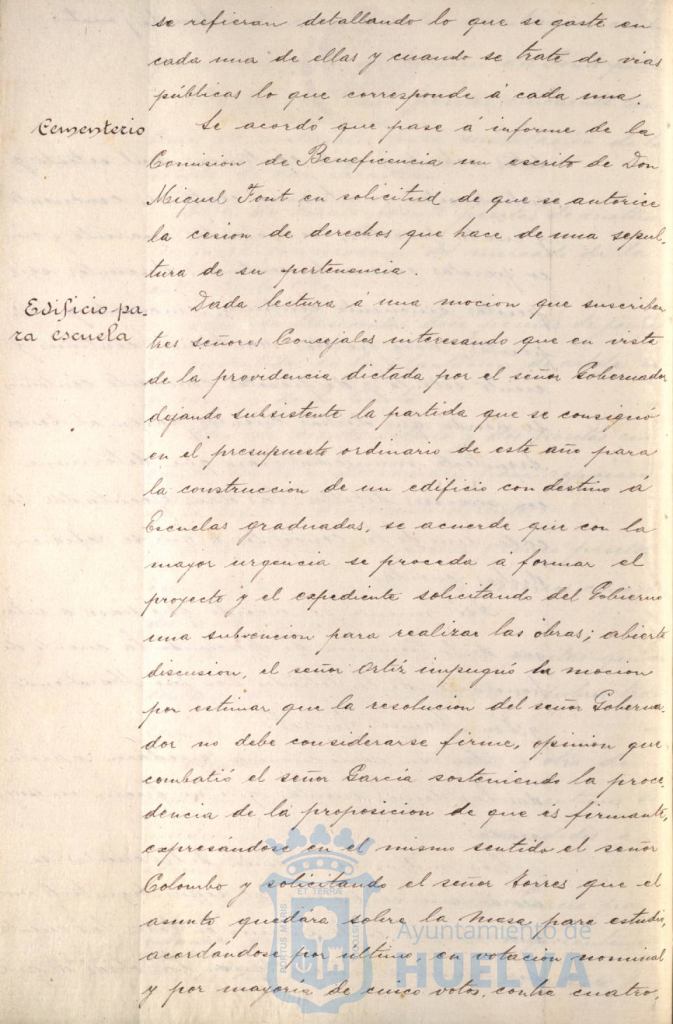 se refieran detallando lo que se gaste en
cada una de ellas y cuando se trate de vias
públicas lo que corresponde á cada una.
Cementerio
Se acordó que pase á informe de la
Comision de Beneficencia un escrito de Don
Miguel Font en solicitud de que se autorice
la cesion de derechos que hace de una sepul-
tura de su pertenencia.
Edificio pa-
ra escuela
Dada lectura á una mocion que suscriben
tres señores Concejales interesando que en vista
de la providencia dictada por el señor Gobernador
dejando subsistente la partida que se consignó
en el presupuesto ordinario de este año para
la construccion de un edificio con destino á
Escuelas graduadas, se acuerde que con la
mayor urgencia se proceda á formar el
proyecto y el expediente solicitando del Gobierno
una subvencion para realizar las obras; abierta
discusion, el señor Ortíz impugnó la mocion
por estimar que la resolucion del señor Goberna-
dor no debe considerarse firme, opinion que
combatió el señor García sosteniendo la proce-
dencia de la proposicion de que es firmante,
expresándose en el mismo sentido el señor
Colombo y solicitando el señor Torres que el
asunto quedára sobre la mesa para estudio,
acordándose por último, en votacion nominal
y por mayoría de cinco votos, contra cuatro,
PORTUS MARIS
ET TERRÆ
CUSTODIA
Ayuntamiento de
HUELVA